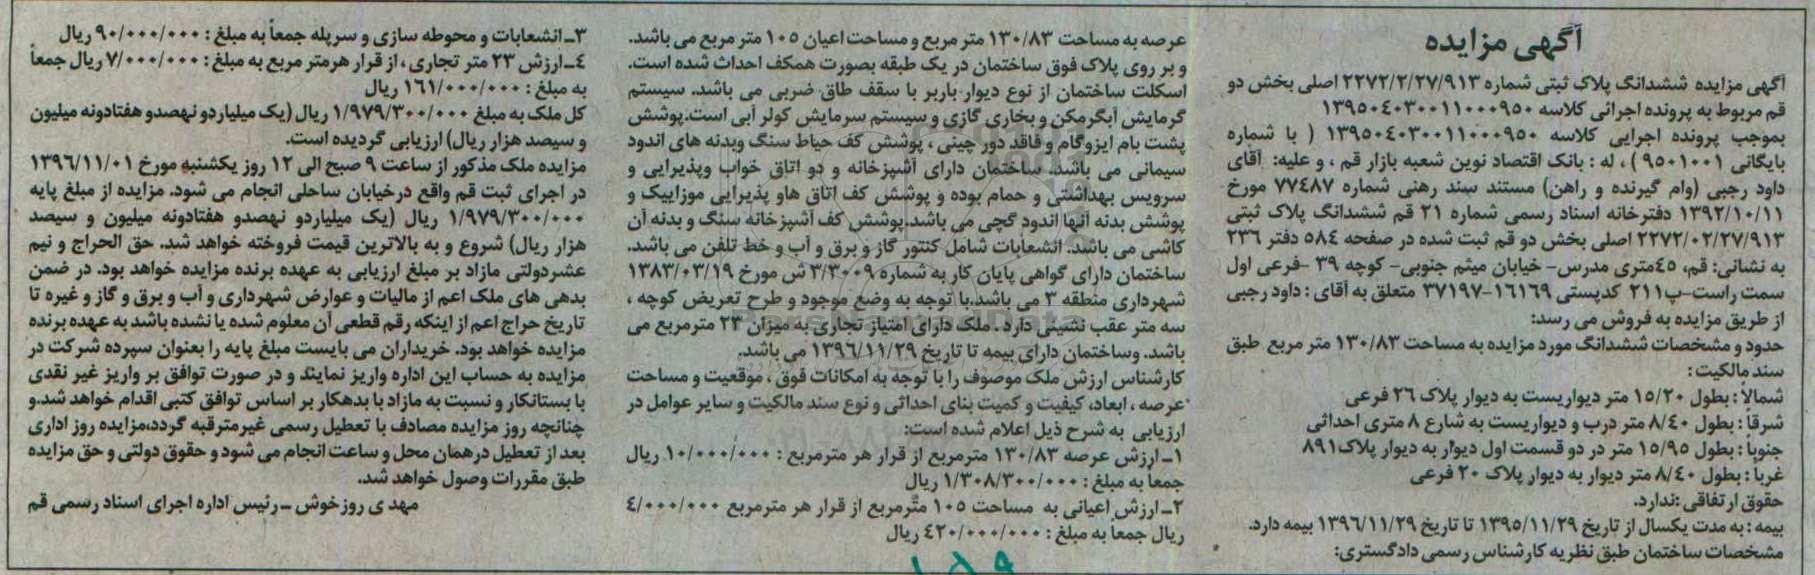 آگهی مزایده
آگهی مزایده ششدانگ پلاک ثبتی شماره ۲۲۷۲/۲/۲۷/۹۱۳ اصلی بخش دو
قم مربوط به پرونده اجرائی کلاسه ۱۳۹۵۰۴۰۳۰۰۱۱۰۰۰۹۵۰
بموجب پرونده اجرایی کلاسه ۱۳۹۵۰۴۰۳۰۰۱۱۰۰۰۹۵۰ ( با شماره
بایگانی ۹۵۰۱۰۰۱ ) ، له : بانک اقتصاد نوین شعبه بازار قم ، و علیه: آقای
داود رجبی (وام گیرنده و راهن) مستند سند رهنی شماره ۷۷۴۸۷ مورخ
۱۳۹۲/۱۰/۱۱ دفترخانه اسناد رسمی شماره ۲۱ قم ششدانگ پلاک ثبتی
۲۲۷۲/۰۲/۲۷/۹۱۳ اصلی بخش دو قم ثبت شده در صفحه ۵۸۴ دفتر ۲۳۶
به نشانی: قم، ۴۵متری مدرس- خیابان میثم جنوبی- کوچه ۳۹ -فرعی اول
سمت راست-پ۲۱۱ کدپستی ۱۶۱۶۹-۳۷۱۹۷ متعلق به آقای : داود رجبی
از طریق مزایده به فروش می رسد:
حدود و مشخصات ششدانگ مورد مزایده به مساحت ۱۳۰/۸۳ متر مربع طبق
سند مالکیت :
شمالاً : بطول ۱۵/۲۰ متر دیواریست به دیوار پلاک ۲۶ فرعی
شرقاً : بطول ۸/۴۰ متر درب و دیواریست به شارع ۸ متری احداثی
جنوباً : بطول ۱۵/۹۵ متر در دو قسمت اول دیوار به دیوار پلاک۸۹۱
غرباً : بطول ۸/۴۰ متر دیوار به دیوار پلاک ۲۰ فرعی
حقوق ارتفاقی :ندارد.
بیمه : به مدت یکسال از تاریخ ۱۳۹۵/۱۱/۲۹ تا تاریخ ۱۳۹۶/۱۱/۲۹ بیمه دارد.
مشخصات ساختمان طبق نظریه کارشناس رسمی دادگستری:
عرصه به مساحت ۱۳۰/۸۳ متر مربع و مساحت اعیان ۱۰۵ متر مربع می باشد.
و بر روی پلاک فوق ساختمان در یک طبقه بصورت همکف احداث شده است.
اسکلت ساختمان از نوع دیوار باربر با سقف طاق ضربی می باشد. سیستم
گرمایش آبگرمکن و بخاری گازی و سیستم سرمایش کولر آبی است.پوشش
پشت بام ایزوگام و فاقد دور چینی ، پوشش کف حیاط سنگ وبدنه های اندود
سیمانی می باشد. ساختمان دارای آشپزخانه و دو اتاق خواب وپذیرایی و
سرویس بهداشتی و حمام بوده و پوشش کف اتاق هاو پذیرایی موزاییک و
پوشش بدنه آنها اندود گچی می باشد.پوشش کف آشپزخانه سنگ و بدنه آن
کاشی می باشد. انشعابات شامل کنتور گاز و برق و آب و خط تلفن می باشد.
ساختمان دارای گواهی پایان کار به شماره ۳/۳۰۰۹ ش مورخ ۱۳۸۳/۰۳/۱۹
شهرداری منطقه ۳ می باشد.با توجه به وضع موجود و طرح تعریض کوچه ،
سه متر عقب نشینی دارد . ملک دارای امتیاز تجاری به میزان ۲۳ مترمربع می
باشد. وساختمان دارای بیمه تا تاریخ ۱۳۹۶/۱۱/۲۹ می باشد.
کارشناس ارزش ملک موصوف را با توجه به امکانات فوق ، موقعیت و مساحت
عرصه ، ابعاد، کیفیت و کمیت بنای احداثی و نوع سند مالکیت و سایر عوامل در
ارزیابی به شرح ذیل اعلام شده است:
۱- ارزش عرصه ۱۳۰/۸۳ مترمربع از قرار هر مترمربع : ۱۰/۰۰۰/۰۰۰ ریال
جمعاً به مبلغ : ۱/۳۰۸/۳۰۰/۰۰۰ ریال
۲- ارزش اعیانی به مساحت ۱۰۵ مترمربع از قرار هر مترمربع ۴/۰۰۰/۰۰۰
ریال جمعاً به مبلغ : ۴۲۰/۰۰۰/۰۰۰ ریال
۳- انشعابات و محوطه سازی و سرپله جمعاً به مبلغ : ۹۰/۰۰۰/۰۰۰ ریال
۴- ارزش ۲۳ متر تجاری ، از قرار هرمتر مربع به مبلغ : ۷/۰۰۰/۰۰۰ ریال جمعاً
به مبلغ : ۱۶۱/۰۰۰/۰۰۰ ریال
کل ملک به مبلغ ۱/۹۷۹/۳۰۰/۰۰۰ ریال (یک میلیاردو نهصدو هفتادونه میلیون
و سیصد هزار ریال) ارزیابی گردیده است.
مزایده ملک مذکور از ساعت ۹ صبح الی ۱۲ روز یکشنبه مورخ ۱۳۹۶/۱۱/۰۱
در اجرای ثبت قم واقع درخیابان ساحلی انجام می شود. مزایده از مبلغ پایه
۱/۹۷۹/۳۰۰/۰۰۰ ریال (یک میلیاردو نهصدو هفتادونه میلیون و سیصد
هزار ریال) شروع و به بالاترین قیمت فروخته خواهد شد. حق الحراج و نیم
عشردولتی مازاد بر مبلغ ارزیابی به عهده برنده مزایده خواهد بود. در ضمن
بدهی های ملک اعم از مالیات و عوارض شهرداری و آب و برق و گاز و غیره تا
تاریخ حراج اعم از اینکه رقم قطعی آن معلوم شده یا نشده باشد به عهده برنده
مزایده خواهد بود. خریداران می بایست مبلغ پایه را بعنوان سپرده شرکت در
مزایده به حساب این اداره واریز نمایند و در صورت توافق بر واریز غیر نقدی
با بستانکار و نسبت به مازاد با بدهکار بر اساس توافق کتبی اقدام خواهد شد.و
چنانچه روز مزایده مصادف با تعطیل رسمی غیرمترقبه گردد،مزایده روز اداری
بعد از تعطیل درهمان محل و ساعت انجام می شود و حقوق دولتی و حق مزایده
طبق مقررات وصول خواهد شد.
مهدی روزخوش - رئیس اداره اجرای اسناد رسمی قم